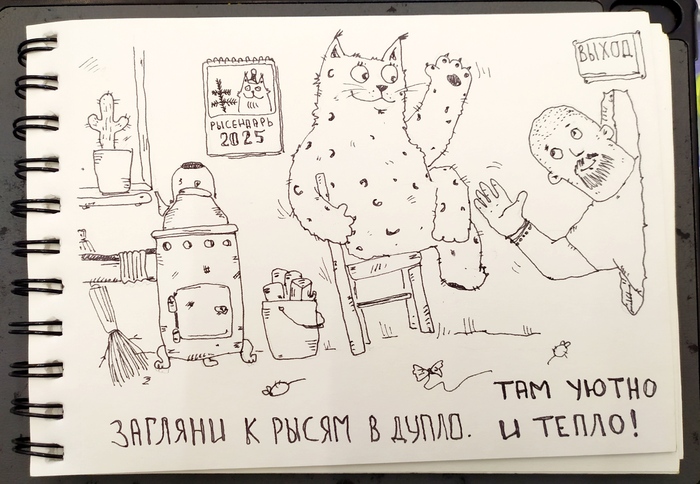 ВЫХОД
РЫСЕНДАРЬ
2025
ТАМ УЮТНО
ЗАГЛЯНИ К РЫСЯМ В ДУПЛО. И ТЕПЛО!